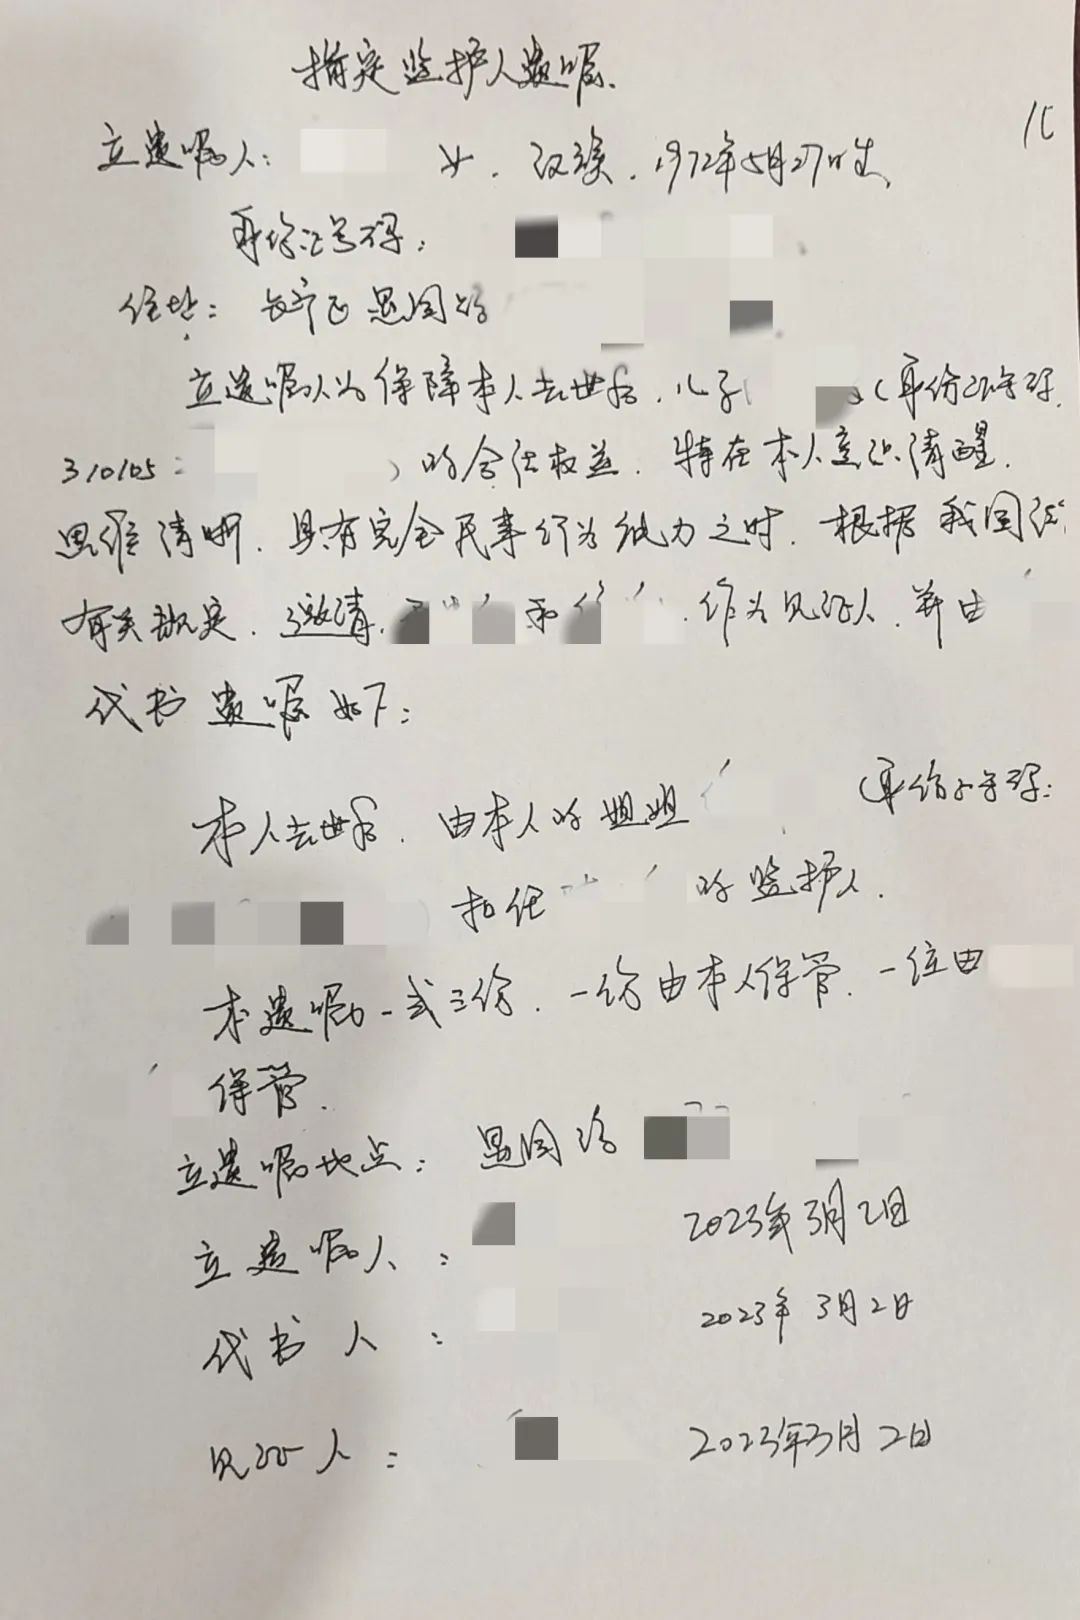 指定监护人遗嘱.
立遗嘱人: 女. 汉族. 1972年5月27日生
身份证号码:
住址: 长宁区 恩国路
立遗嘱人为保障本人去世后. 儿子 (身份证号码
310105 ) 的合法权益. 特在本人意识清醒.
思维清晰. 具有完全民事行为能力之时. 根据我国法
有关规定. 邀请 和 作为见证人. 并由
代书遗嘱如下:
本人去世后. 由本人的姐姐 (身份证号码:
担任 的监护人.
本遗嘱一式三份. 一份由本人保管. 一份由
保管.
立遗嘱地点:
立遗嘱人: 2023年3月2日
代书人: 2023年3月2日
见证人: 2023年3月2日